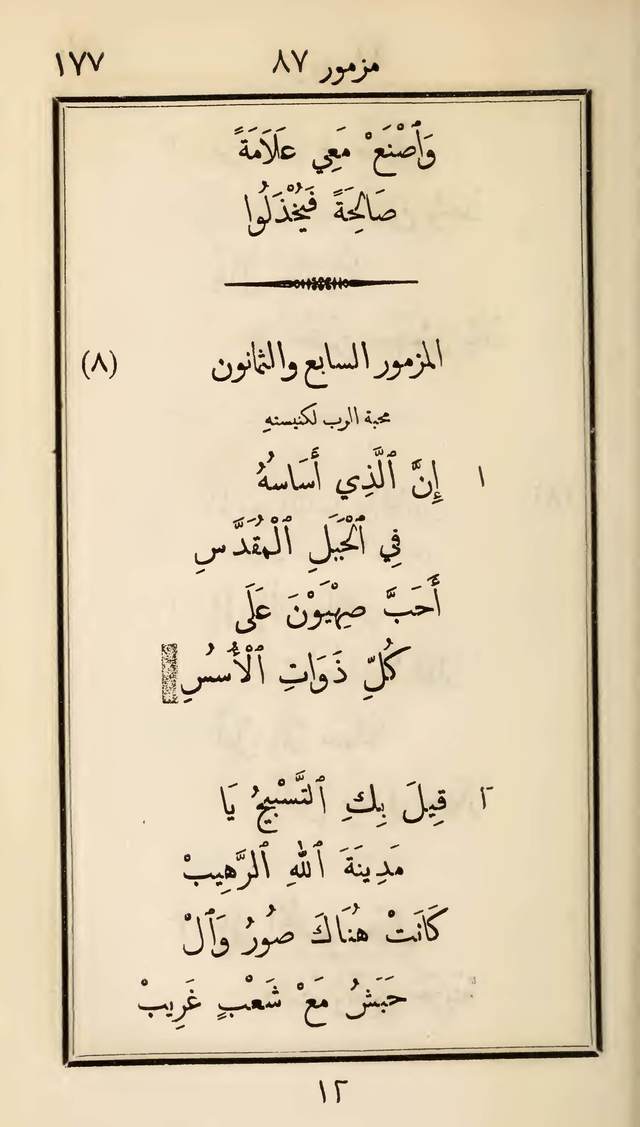 مزمور ٨٧ ١٧٧
وَٱصْنَعْ مَعِي عَلَامَةً
صَالِحَةً فَيُخْذَلُوا
المزمور السابع والثمانون (٨)
محبة الرب لكنيسته
١ إِنَّ ٱلَّذِي أَسَاسُهُ
فِي ٱلْجَبَلِ ٱلْمُقَدَّسِ
أَحَبَّ صِهْيَوْنَ عَلَى
كُلِّ ذَوَاتِ ٱلْأُسُسِ
٢ قِيلَ بِكِ ٱلتَّسْبِيحُ يَا
مَدِينَةَ ٱللهِ ٱلرَّهِيبْ
كَانَتْ هُنَاكَ صُورُ وَٱلْ
حَبَشُ مَعْ شَعْبٍ غَرِيبْ
١٢